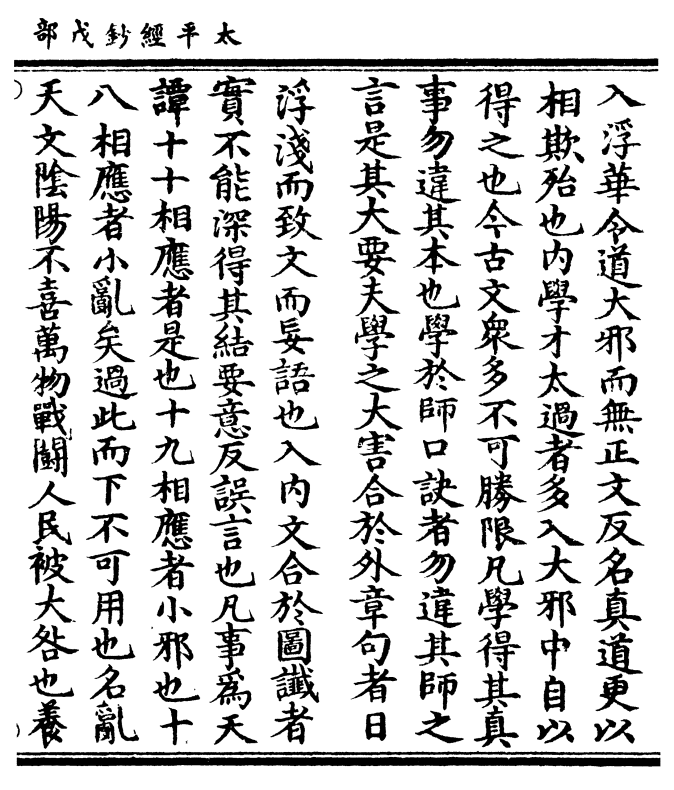 太平經鈔戊部
入浮華令道大邪而無正文反名真道更以
相欺殆也內學才太過者多入大邪中自以
得之也今古文眾多不可勝限凡學得其真
事勿違其本也學於師口訣者勿違其師之
言是其大要夫學之大害合於外章句者日
浮淺而致文而妄語也入內文合於圖讖者
實不能深得其結要意反誤言也凡事為天
譚十十相應者是也十九相應者小邪也十
八相應者小亂矣過此而下不可用也名亂
天文陰陽不喜萬物戰鬪人民被大咎也養